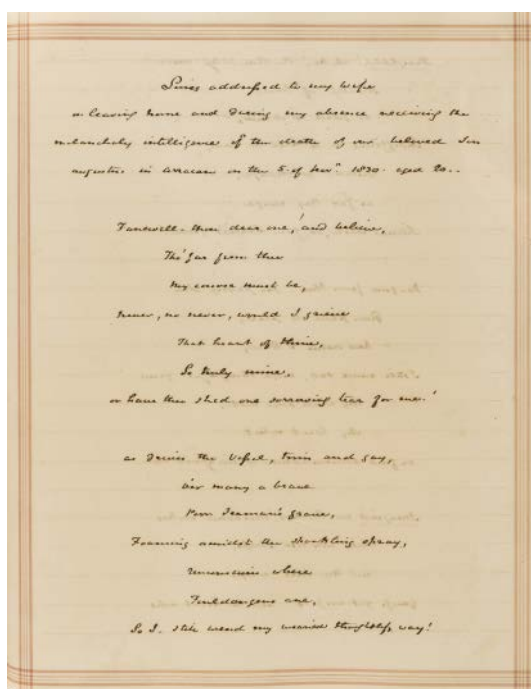 Lines addressed to my Wife
on leaving home and during my absence receiving the
melancholy intelligence of the death of our beloved Son
augustus in on the 5 of Novr. 1830. aged 20..
Farewell. thou dear one,! and believe,
Tho' far from thee
my course must be,
never, no never, would I grieve
That heart of thine,
So truly mine,
or have thee shed one sorrowing tear for me.!
as the Vessel, trim and gay,
o'er many a brave
Poor Seaman's grave,
Foaming amidst the sparkling spray,
unconscious where
Foul dangers are,
So I. still wend my wearied thoughtless way!